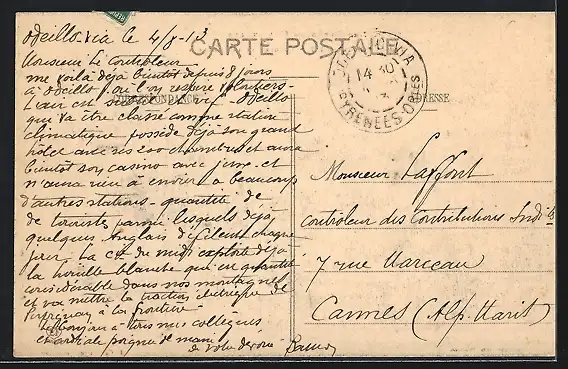 Odeillo-Via le 4/8-13
CARTE POSTALE
CORRESPONDANCE
ADRESSE
ODEILLO-VIA
14 30
PYRENEES-OLES
Monsieur Le Controleur
me voilà déjà bientot depuis 8 jours
à Odeillo, où l'on respire volontiers
L'air est Odeillo
qui va être classé comme station
climatique possède déjà son grand
hôtel avec ses 200 chambres et aura
bientot son casino avec jeux. et
n'aura rien à envier a beaucoup
d'autres stations - quantité de
de touristes parmi lesquels déjà
quelques Anglais défilent chaque
jour. La Cie du midi exploite déjà
la houille blanche qui en quantité
considérable dans nos montagnes
et va mettre la traction électrique de
Perpignan à la frontière
Le bonjour à tous mes collègues
et cordiale poignée de main
de votre dévoué
Monsieur Laffont
Controleur des Contributions Indtes
7 rue Marceau
Cannes (Alp. Marit)